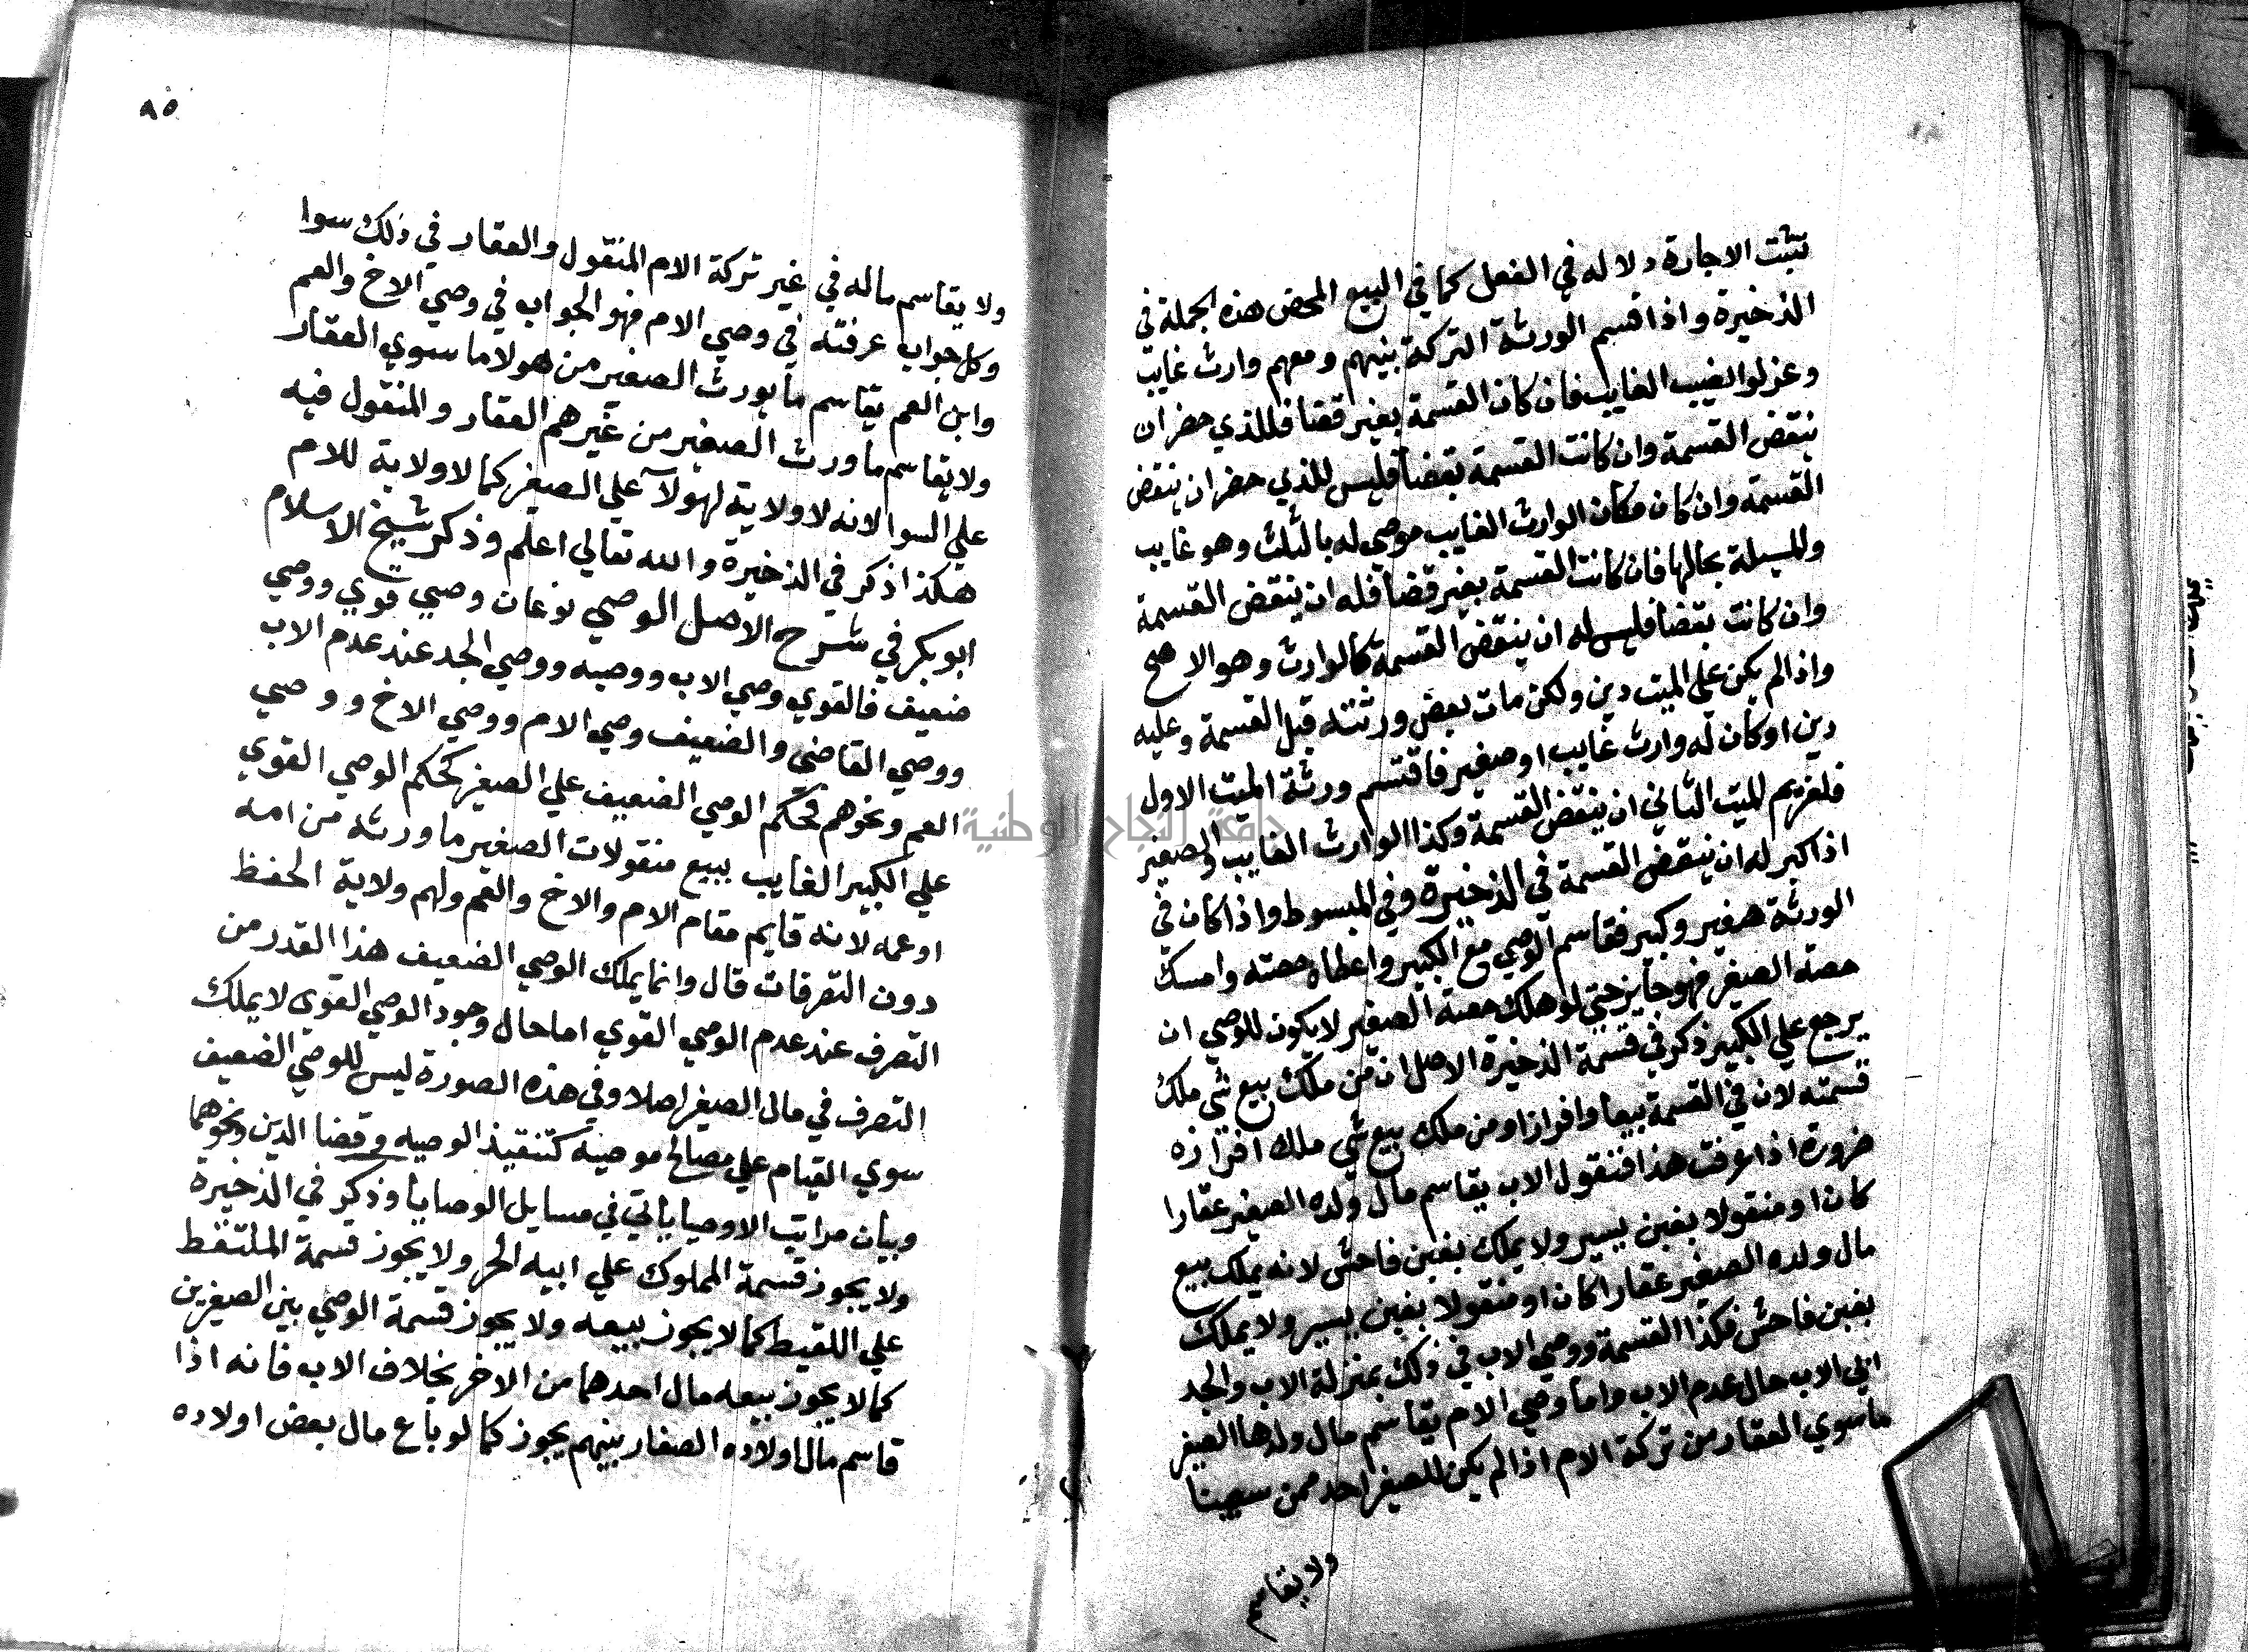 تثبت الاجازة دلاله في الفعل كما في البيع المحض هذه الجملة في
الذخيرة واذا قسم الورثة التركة بينهم ومعهم وارث غايب
وعزلوا نصيب الغايب فان كان القسمة بغير قضا فللذي حضر ان
ينقض القسمة وان كانت القسمة بقضا فليس للذي حضر ان ينقض
القسمة وان كان مكان الوارث الغايب موصي له بالثلث وهو غايب
والمسيلة بحالها فان كانت القسمة بغير قضا فله ان ينقض القسمة
وان كانت بقضا فليس له ان ينقض القسمة كالوارث وهو الاصح
واذا لم يكن علي الميت دين ولكن مات بعض ورثته قبل القسمة وعليه
دين او كان له وارث غايب او صغير فاقتسم ورثة الميت الاول
فلغريم الميت الثاني ان ينقض القسمة وكذا الوارث الغايب والصغير
اذا كبر له ان ينقض القسمة في الذخيرة وفي المبسوط واذا كان في
الورثة صغير وكبير فقاسم الوصي مع الكبير واعطاه حصته وامسك
حصته الصغير فهو جايز حتي لو هلك حصة الصغير لا يكون للوصي ان
يرجع علي الكبير ذكر في قسمة الذخيرة الاصل ان من ملك بيع شي ملك
قسمته لان في القسمة بيعا وافرازا ومن ملك بيع شي ملك افرازه
ضرورة اذا عرفت هذا فنقول الاب يقاسم مال ولده الصغير عقارا
كان او منقولا بغبن يسير ولا يملك بغبن فاحش لانه يملك بيع
مال ولده الصغير عقارا كان او منقولا بغبن يسير ولا يملك
بغبن فاحش فكذا القسمة ووصي الاب في ذلك بمنزلة الاب والجد
ابي الاب حال عدم الاب واما وصي الام يقاسم مال ولدها الصغير
ماسوي العقار من تركة الام اذا لم يكن للصغير احد ممن سمينا
ولا يقاسم
٨٥
ولا يقاسم ماله في غير تركة الام المنقول والعقار في ذلك سوا
وكل جواب عرفته في وصي الام فهو الجواب في وصي الاخ والعم
وابن العم يقاسم ما يورث الصغير من هولا ما سوي العقار
ولا يقاسم ما ورث الصغير من غيرهم العقار والمنقول فيه
علي السوا لانه لا ولاية لهولآ علي الصغير كما لا ولاية للام
هكذا ذكر في الذخيرة والله تعالي اعلم وذكر شيخ الاسلام
ابو بكر في شرح الاصل الوصي نوعان وصي قوي ووصي
ضعيف فالقوي وصي الاب ووصيه ووصي الجد عند عدم الاب
ووصي القاضي والضعيف وصي الام ووصي الاخ ووصي
العم ونحوهم فحكم الوصي الضعيف علي الصغير كحكم الوصي القوي
علي الكبير الغايب يبيع منقولات الصغير ما ورثه من امه
او عمه لانه قايم مقام الام والاخ والعم ولهم ولاية الحفظ
دون التصرفات قال وانما يملك الوصي الضعيف هذا القدر من
التصرف عند عدم الوصي القوي اما حال وجود الوصي القوي لا يملك
التصرف في مال الصغير اصلا وفي هذه الصورة ليس للوصي الضعيف
سوي القيام علي مصالح موصيه كتنفيذ الوصيه وقضا الدين ونحوهما
وبيان مراتب الاوصيا ياتي في مسايل الوصايا وذكر في الذخيرة
ولا يجوز قسمة المملوك علي ابيه الحر ولا يجوز قسمة الملتقط
علي اللقيط كما لا يجوز بيعه ولا يجوز قسمة الوصي بين الصغيرين
كما لا يجوز بيعه مال احدهما من الاخر بخلاف الاب فانه اذا
قاسم مال اولاده الصغار بينهم يجوز كما لو باع مال بعض اولاده
جامعة النجاح الوطنية